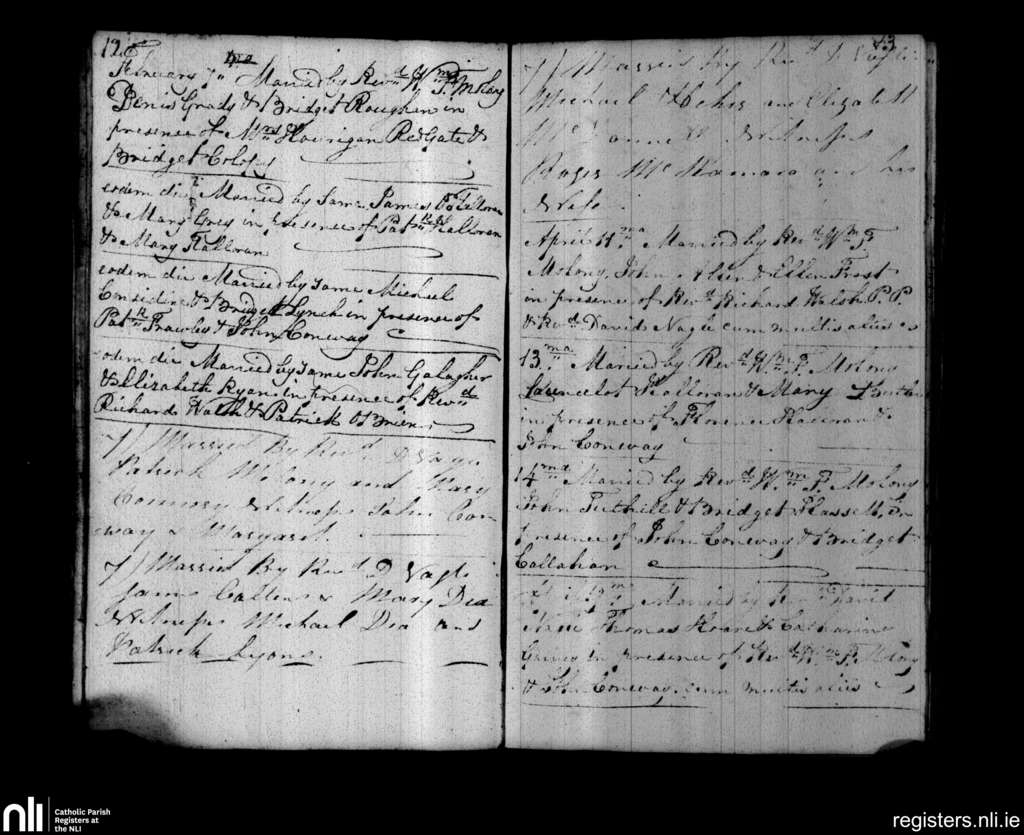 12
February 7 ma Married by Revd Wm F. McLony
Denis Grady & Bridget Roughan in
presence of Mrs Hourigan Redgate &
Bridget
eodem die Married by Same James OHalloran
& Mary Grey in presence of Patk Halloran
& Mary Halloran
eodem die Married by Same Michael
Considine & Bridget Lynch in presence of
Patk Frawley & John Conway
eodem die Married by Same John Galagher
& Elizabeth Ryan in presence of Revd
Richard Walsh & Patrick OBrien
7) Married By Revd D Nagle
Patrick Molony and Mary
Witness John Con
way & Margaret
7) Married By Revd D Nagle
James & Mary Dea
Witness Michael Dea and
Patrick Lyons.
13
7) Married by Revd D Nagle
Michael and Elizabeth
Witness
Roger McNamara and his
Wife
April 11 ma Married by Revd Wm F.
Molony John & Ellen Frost
in presence of Revd Richard Walsh P.P.
& Revd David Nagle cum multis aliis
13 ma Married by Revd Wm F. Molony
Launcelot Halloran & Mary
in presence of Florence &
John Conway
14 ma Married by Revd Wm F Molony
John Tuthill & Bridget in
presence of John Conway & Bridget
Callahan
Married by Revd David
Thomas & Catharine
in presence of Revd Wm F. Molony
& John Conway cum multis aliis
nli
Catholic Parish
Registers at
the NLI
registers.nli.ie